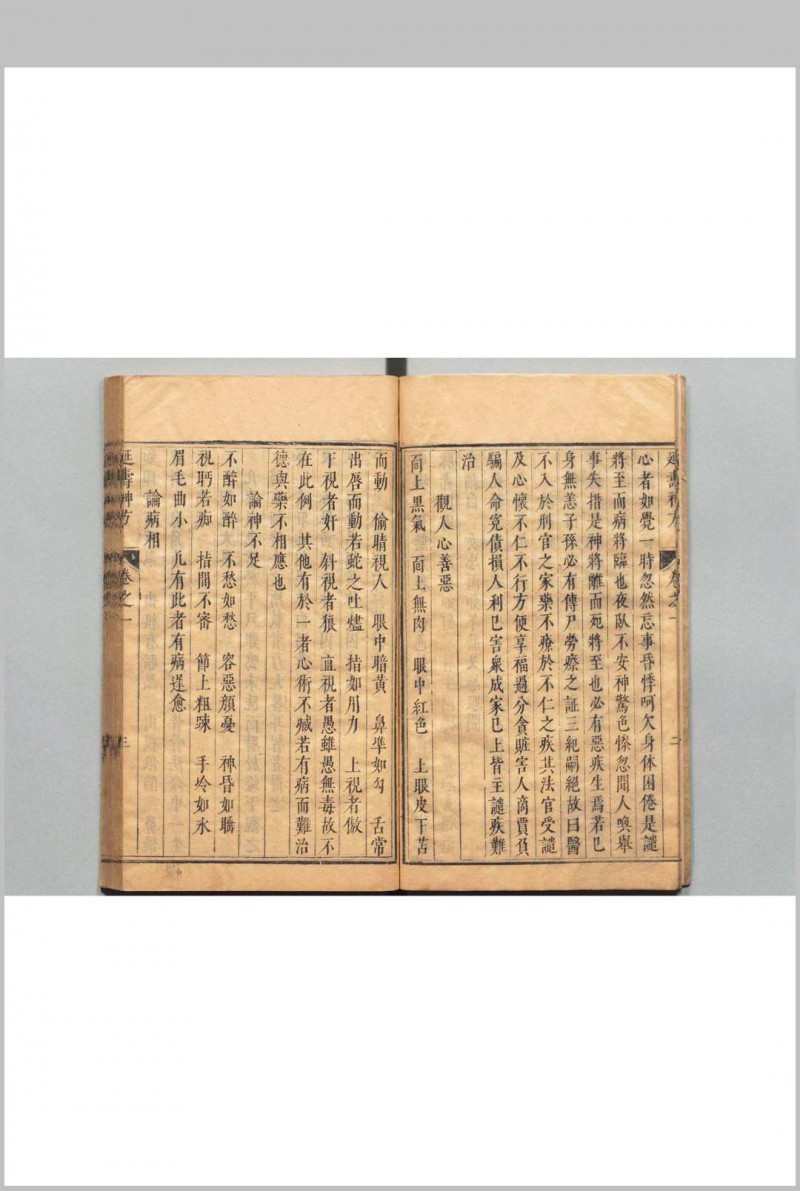 心者如覺一時忽然忘事昏悸呵欠身休困倦是譴
將至而病將臨也夜臥不安神驚色慘忽聞人喚舉
事失措是神將離而宛將至也必有惡疾生焉若已
身無恙子孫必有傳尸勞瘵之証三紀嗣絕故曰醫
不入於刑官之家藥不療於不仁之疾其法官受譴
及心懷不仁不行方便享福過分貪賍害人商賈負
騙人命寃債損人利已害衆成家已上皆主譴疾難
治
觀人心善惡
面上黒氣 面上無肉 眼中紅色 上眼皮下苦
而動 偷睛視人 眼中暗黄 鼻準如勾 舌常
出唇而動若蛇之吐 措如用力 上視者傲
下視者奸 斜視者狼 直視者愚雖愚無毒故不
在此例 其他有於一者心術不臧若有病而難治
德與藥不相應也
論神不足
不醉如醉 不愁如愁 容惡顔憂 神昏如
視眄若痴 措間不審 節上粗踈 手冷如氷
眉毛曲小 凢有此者有病遲愈
論病相
延壽神方 卷之一 三